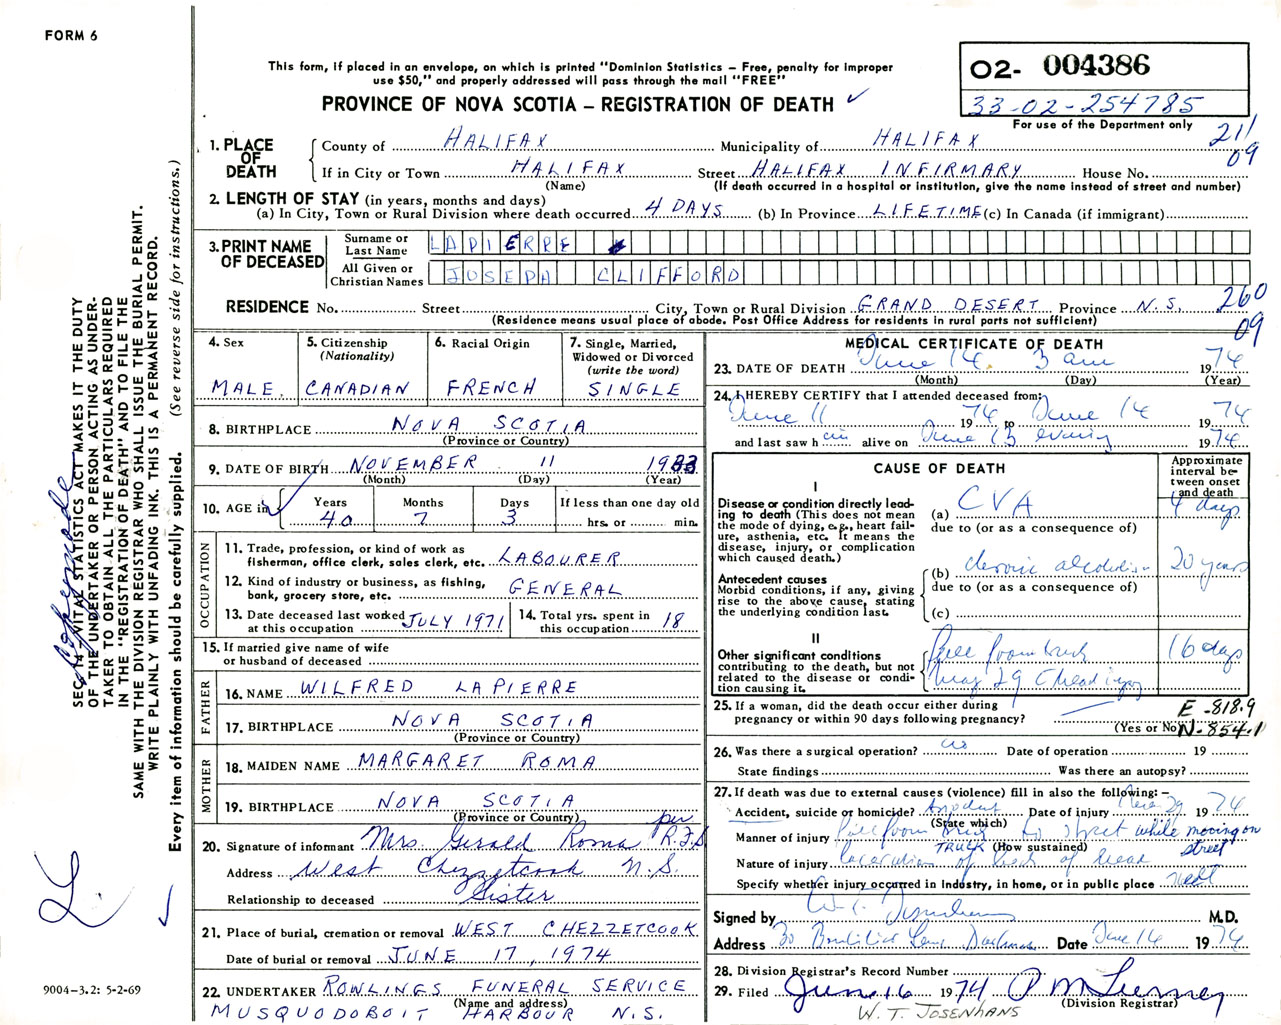 FORM 6
This form, if placed in an envelope, on which is printed "Dominion Statistics – Free, penalty for improper
use $50," and properly addressed will pass through the mail "FREE"
PROVINCE OF NOVA SCOTIA – REGISTRATION OF DEATH ✓
O2- 004386
33-02-254785
For use of the Department only
211
09
1. PLACE OF DEATH
County of HALIFAX Municipality of HALIFAX
If in City or Town HALIFAX Street HALIFAX INFIRMARY House No.
(Name) (If death occurred in a hospital or institution, give the name instead of street and number)
2. LENGTH OF STAY (in years, months and days)
(a) In City, Town or Rural Division where death occurred 4 DAYS (b) In Province LIFETIME (c) In Canada (if immigrant)
3. PRINT NAME OF DECEASED
Surname or Last Name LAPIERRE
All Given or Christian Names JOSEPH CLIFFORD
RESIDENCE No. Street City, Town or Rural Division GRAND DESERT Province N.S.
(Residence means usual place of abode. Post Office Address for residents in rural parts not sufficient)
260
09
4. Sex
MALE.
5. Citizenship
(Nationality)
CANADIAN
6. Racial Origin
FRENCH
7. Single, Married,
Widowed or Divorced
(write the word)
SINGLE
8. BIRTHPLACE NOVA SCOTIA
(Province or Country)
9. DATE OF BIRTH NOVEMBER 11 1933
(Month) (Day) (Year)
10. AGE in Years Months Days If less than one day old
40 7 3 hrs. or min.
OCCUPATION
11. Trade, profession, or kind of work as
fisherman, office clerk, sales clerk, etc. LABOURER
12. Kind of industry or business, as fishing,
bank, grocery store, etc. GENERAL
13. Date deceased last worked
at this occupation JULY 1971
14. Total yrs. spent in
this occupation 18
15. If married give name of wife
or husband of deceased
FATHER
16. NAME WILFRED LAPIERRE
17. BIRTHPLACE NOVA SCOTIA
(Province or Country)
MOTHER
18. MAIDEN NAME MARGARET ROMA
19. BIRTHPLACE NOVA SCOTIA
(Province or Country)
20. Signature of informant Mrs. Gerald Roma per R.F.S
Address West Chezzetcook N.S.
Relationship to deceased Sister
21. Place of burial, cremation or removal WEST CHEZZETCOOK
Date of burial or removal JUNE 17, 1974
22. UNDERTAKER ROWLINGS FUNERAL SERVICE
(Name and address)
MUSQUODOBOIT HARBOUR N.S.
MEDICAL CERTIFICATE OF DEATH
23. DATE OF DEATH June 14. 3 am 1974
(Month) (Day) (Year)
24. I HEREBY CERTIFY that I attended deceased from:
June 11 1974 to June 14 1974
and last saw h im alive on June 13 evening 1974
CAUSE OF DEATH
Approximate
interval be-
tween onset
and death
I
Disease or condition directly lead-
ing to death (This does not mean
the mode of dying, e.g., heart fail-
ure, asthenia, etc. It means the
disease, injury, or complication
which caused death.)
(a) CVA 4 days
due to (or as a consequence of)
Antecedent causes
Morbid conditions, if any, giving
rise to the above cause, stating
the underlying condition last.
(b) chronic alcoholism 20 years
due to (or as a consequence of)
(c)
II
Other significant conditions
contributing to the death, but not
related to the disease or condi-
tion causing it.
fell from truck 16 days
May 29 c head injury
25. If a woman, did the death occur either during
pregnancy or within 90 days following pregnancy?
(Yes or No)
E-818.9
N-854.1
26. Was there a surgical operation? no Date of operation 19
State findings Was there an autopsy?
27. If death was due to external causes (violence) fill in also the following: –
Accident, suicide or homicide? Accident Date of injury May 29 1974
(State which)
Manner of injury fell from truck to street while moving on
TRUCK (How sustained) street
Nature of injury laceration of back of head
Specify whether injury occurred in Industry, in home, or in public place
Signed by M.D.
Address 30 Lane Date June 14 1974
28. Division Registrar's Record Number
29. Filed June 16 1974
(Division Registrar)
W. T. JOSENHANS
SEC. 14 – VITAL STATISTICS ACT MAKES IT THE DUTY
OF THE UNDERTAKER OR PERSON ACTING AS UNDER-
TAKER TO OBTAIN ALL THE PARTICULARS REQUIRED
IN THE "REGISTRATION OF DEATH" AND TO FILE THE
SAME WITH THE DIVISION REGISTRAR WHO SHALL ISSUE THE BURIAL PERMIT.
WRITE PLAINLY WITH UNFADING INK. THIS IS A PERMANENT RECORD.
Every item of information should be carefully supplied. (See reverse side for instructions.)
Copy made
9004-3.2: 5-2-69